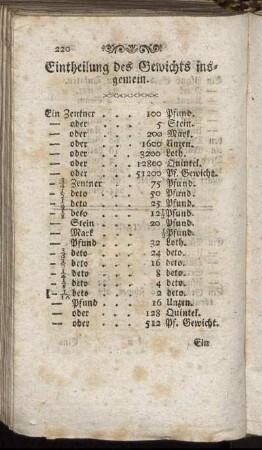 220
Eintheilung des Gewichts ins-
gemein.
Ein Zentner . . . 100 Pfund.
— oder . . . 5 Stein.
— oder . . . 200 Märk.
— oder . . . 1600 Unzen.
— oder . . . 3200 Loth.
— oder . . . 12800 Quintel.
— oder . . . 51200 Pf. Gewicht.
— Zentner . . . 75 Pfund.
— deto . . . 50 Pfund.
— deto . . . 25 Pfund.
— deto . . . 12½ Pfund.
— Stein . . . 20 Pfund.
— Mark . . . ½ Pfund.
— Pfund . . . 32 Loth.
— deto . . . 24 deto.
— deto . . . 16 deto.
— deto . . . 8 deto.
— deto . . . 4 deto.
— deto . . . 2 deto.
— Pfund . . . 16 Unzen.
— oder . . . 128 Quintel.
— oder . . . 512 Pf. Gewicht.
Ein